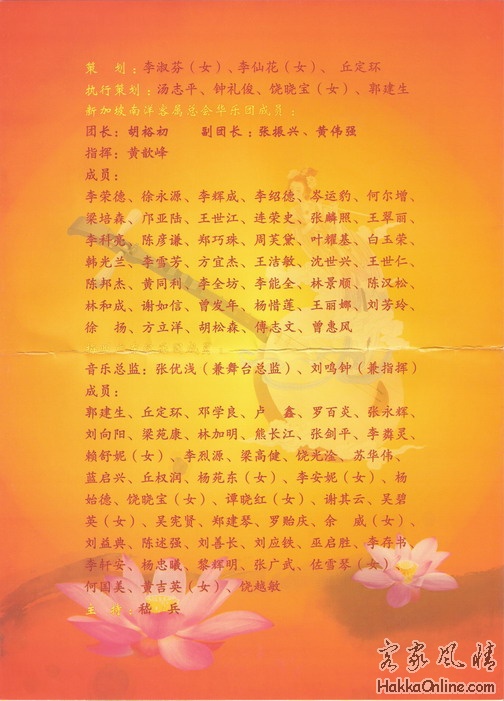 策 划：李淑芬（女）、李仙花（女）、 丘定环
执行策划：汤志平、钟礼俊、饶晓宝（女）、郭建生
新加坡南洋客属总会华乐团成员：
团长：胡裕初 副团长：张振兴、黄伟强
指挥：黄歆峰
成员：
李荣德、徐永源、李辉成、李绍德、岑运豹、何尔增、
梁培森、邝亚陆、王世江、连荣史、张麟照、王翠丽、
李科亮、陈彦谦、郑巧珠、周芙黛、叶耀基、白玉荣、
韩光兰、李雪芳、方宜杰、王洁敏、沈世兴、王世仁、
陈邦杰、黄同利、李全坊、李能全、林景顺、陈汉松、
林和成、谢如信、曾发年、杨惜莲、王丽娜、刘芳玲、
徐 扬、方立洋、胡松森、傅志文、曾惠风
音乐总监：张优浅（兼舞台总监）、刘鸣钟（兼指挥）
成员：
郭建生、丘定环、邓学良、卢 鑫、罗百炎、张永辉、
刘向阳、梁苑康、林加明、熊长江、张剑平、李粦灵、
赖舒妮（女）、李烈源、梁高健、饶光淦、苏华伟、
蓝启兴、丘权润、杨苑东（女）、李安妮（女）、杨
始德、饶晓宝（女）、谭晓红（女）、谢其云、吴碧
英（女）、吴宪贤、郑建琴、罗贻庆、余 威（女）、
刘益典、陈述强、刘善长、刘应铁、巫启胜、李存书、
李轩安、杨忠曦、黎辉明、张广武、佐雪琴（女）、
何国美、黄吉英（女）、饶越敏
主 持：嵇 兵
客家风情
HakkaOnline.com